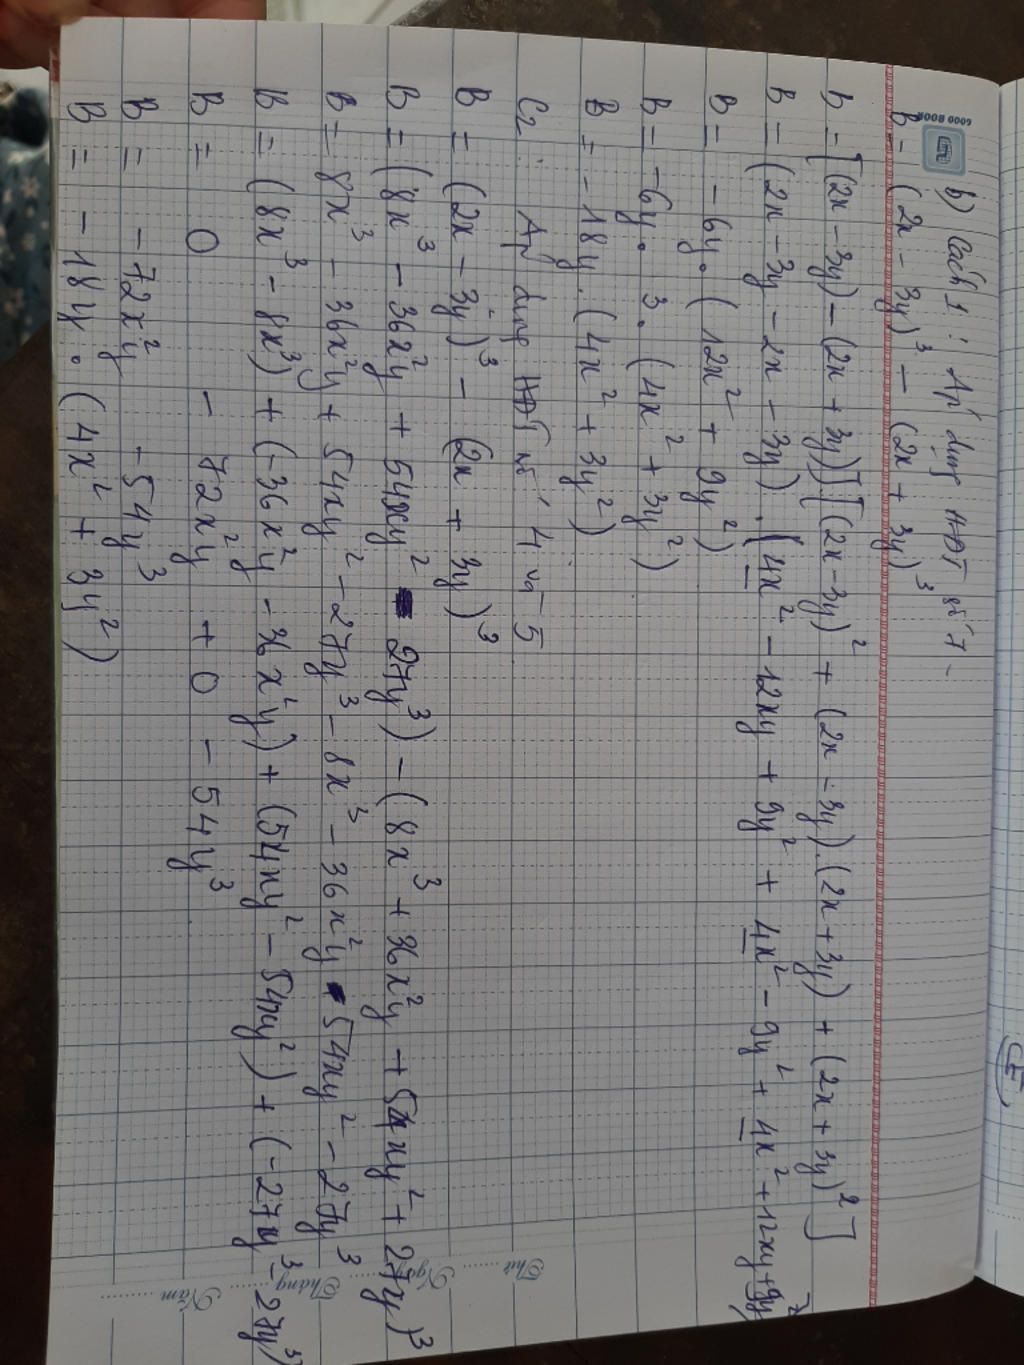 GOOD BOOK
b) Cách 1 : Áp dụng HĐT số 7.
B = (2x - 3y)³ - (2x + 3y)³
B = [(2x - 3y) - (2x + 3y)] [(2x - 3y)² + (2x - 3y).(2x + 3y) + (2x + 3y)²]
B = (2x - 3y - 2x - 3y) . (4x² - 12xy + 9y² + 4x² - 9y² + 4x² + 12xy + 9y²)
B = - 6y . (12x² + 9y²)
B = - 6y . 3 . (4x² + 3y²)
B = - 18y . (4x² + 3y²)
C2 : Áp dụng HĐT số 4 và 5
B = (2x - 3y)³ - (2x + 3y)³
B = (8x³ - 36x²y + 54xy² - 27y³) - (8x³ + 36x²y + 54xy² + 27y)³
B = 8x³ - 36x²y + 54xy² - 27y³ - 8x³ - 36x²y - 54xy² - 27y³
B = (8x³ - 8x³) + (-36x²y - 36x²y) + (54xy² - 54xy²) + (-27y³ - 27y³)
B = 0 - 72x²y + 0 - 54y³
B = - 72x²y - 54y³
B = - 18y . (4x² + 3y²)
Thứ
Ngày
Tháng
Năm